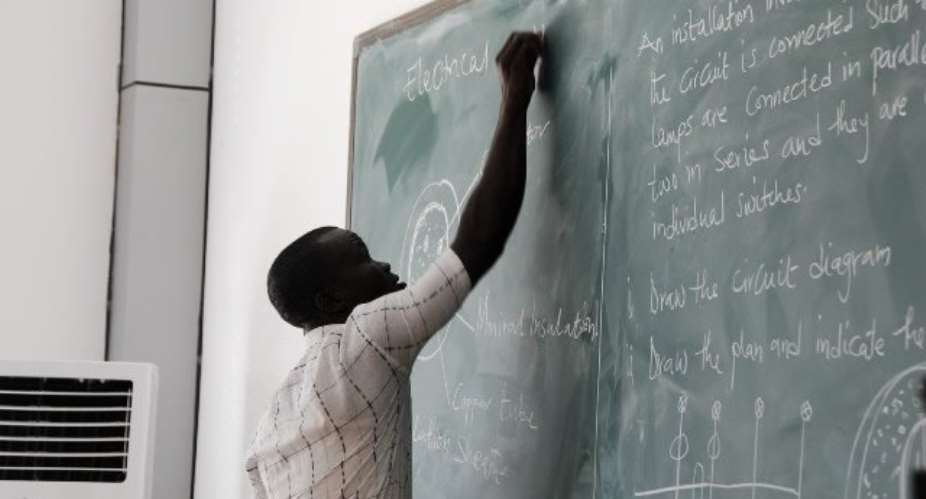 Electrical
Mineral insulation
Copper tube
An installation
the circuit is connected Such
lamps are connected in parallel
two in series and they are
individual switches.
i Draw the circuit diagram
ii Draw the plan and indicate the